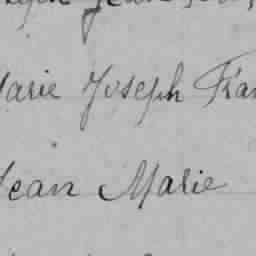 Marie Joseph Fran
Jean Marie